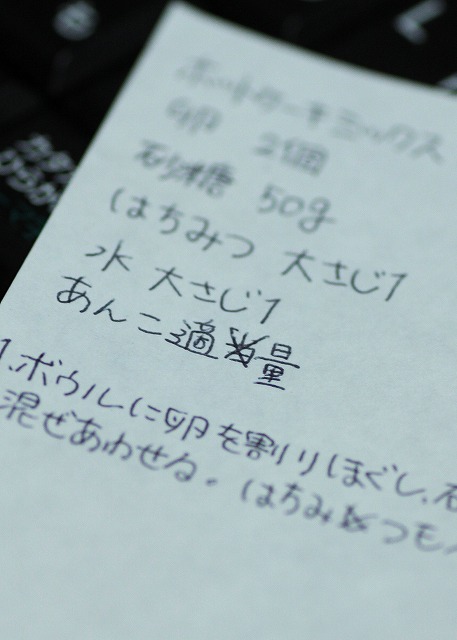 ホットケーキミックス
卵 2個
砂糖 50g
はちみつ 大さじ1
水 大さじ1
あんこ適量
1.ボウルに卵を割りほぐし、
混ぜあわせる。はちみつも